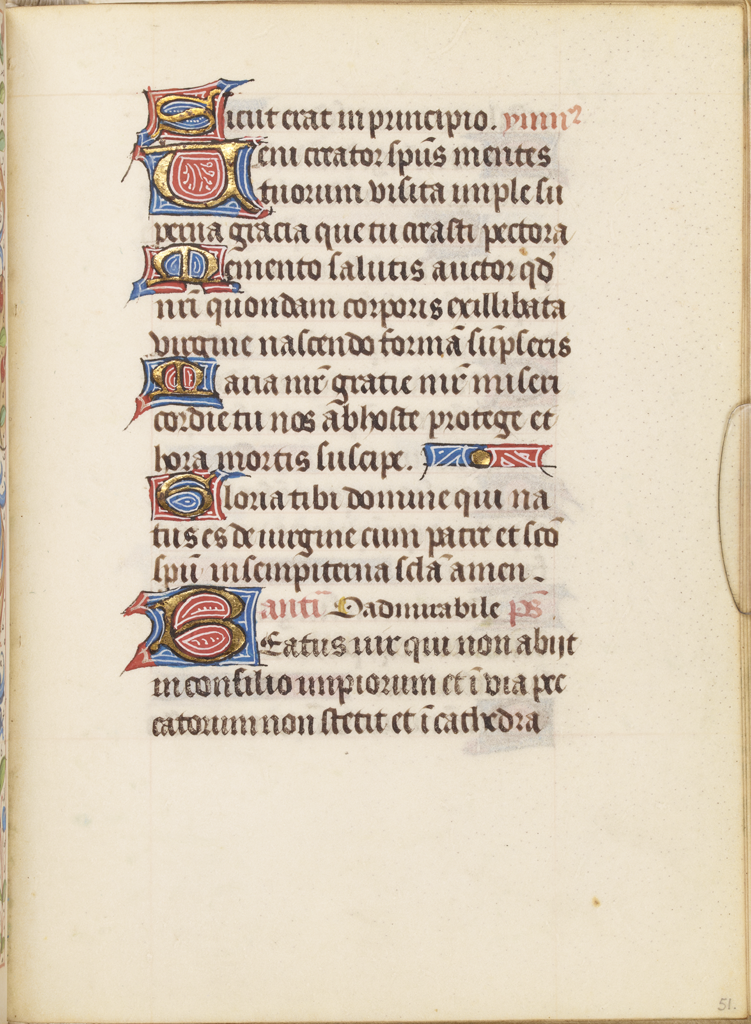 Sicut erat in principio. ymnꝰ
Veni creator sp̄us mentes
tuorum visita imple su
perna gracia que tu creasti pectora
Memento salutis auctor qd̄
nr̄i quondam corporis exillibata
virgine nascendo formā sūpseris
Maria mr̄ gratie mr̄ miseri
cordie tu nos ab hoste protege et
hora mortis suscipe.
Gloria tibi domine qui na
tus es de virgine cum patre et sc̄o
sp̄u in sempiterna sc̄la amen.
antī O admirabile p̄s
Beatus uir qui non abijt
in consilio impiorum et ī via pec
catorum non stetit et ī cathedra
51.